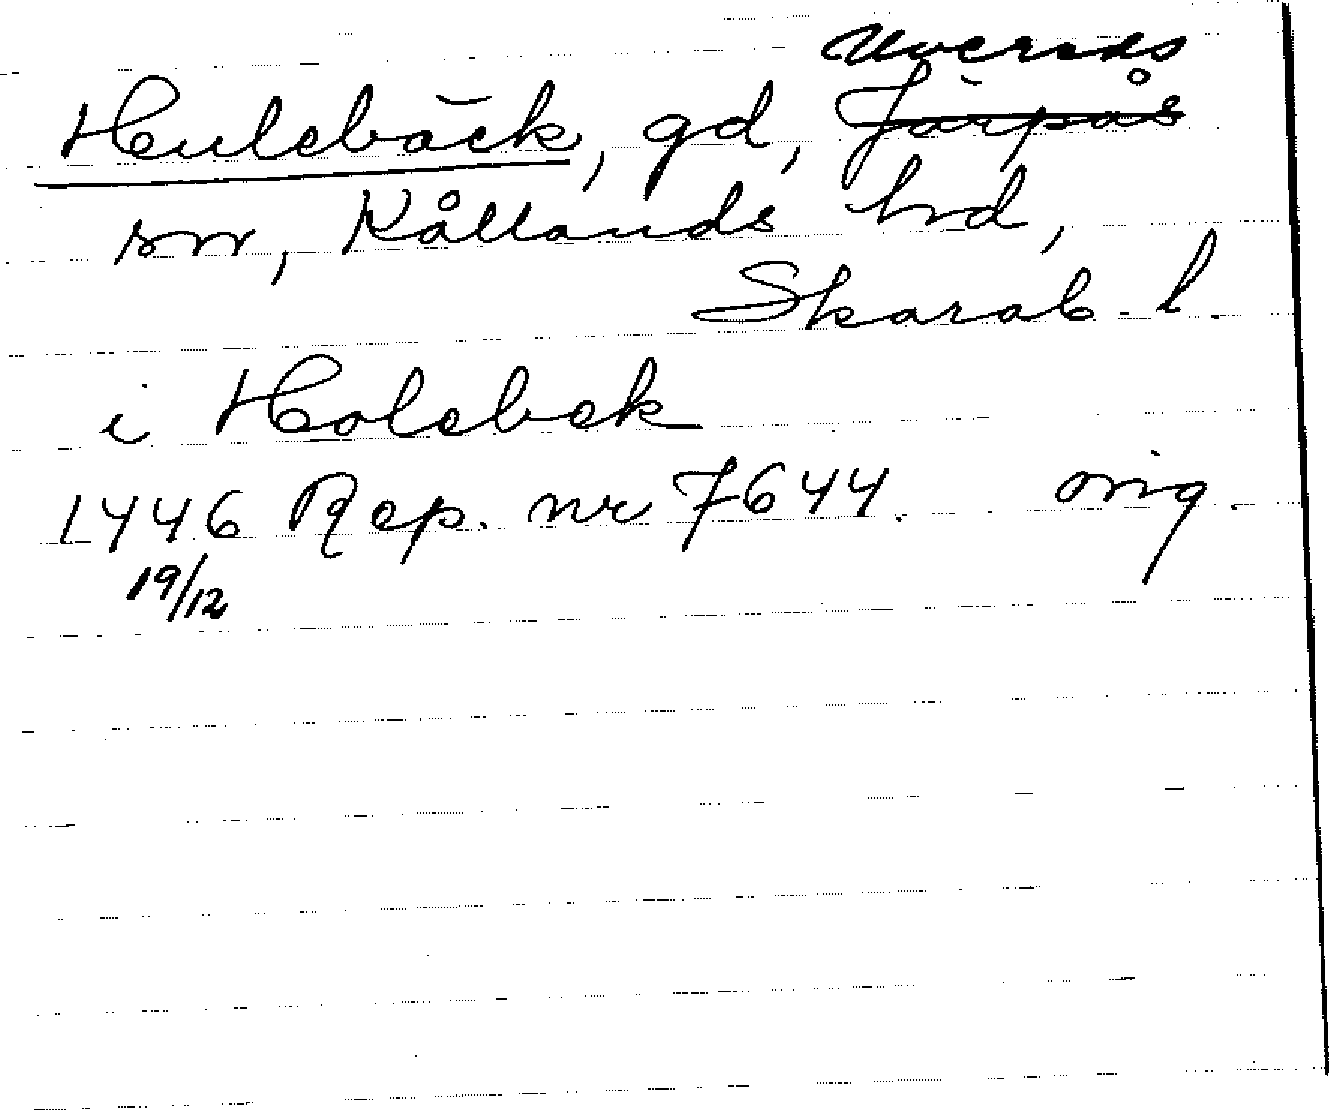 Uvereds
Hulebäck, gd, Järpås
sn, Kållands hd,
Skarab. l.
i Holebek
1446 Rep. nr 7644. orig.
19/12